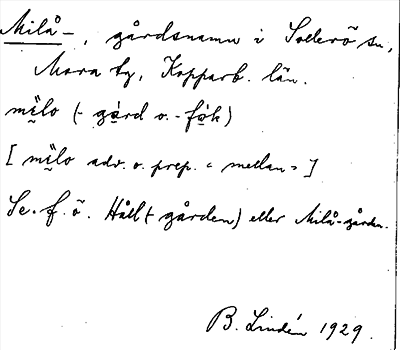 Milå-, gårdsnamn i Sollerö sn,
Mora tg, Kopparb. län.
mı̨̈lo (-gård o. -fok)
[mı̨̈lo adv. o. prep. "mellan"]
Se f. ö. Håll (-gården) eller Milå-gården.
B. Lindén 1929.